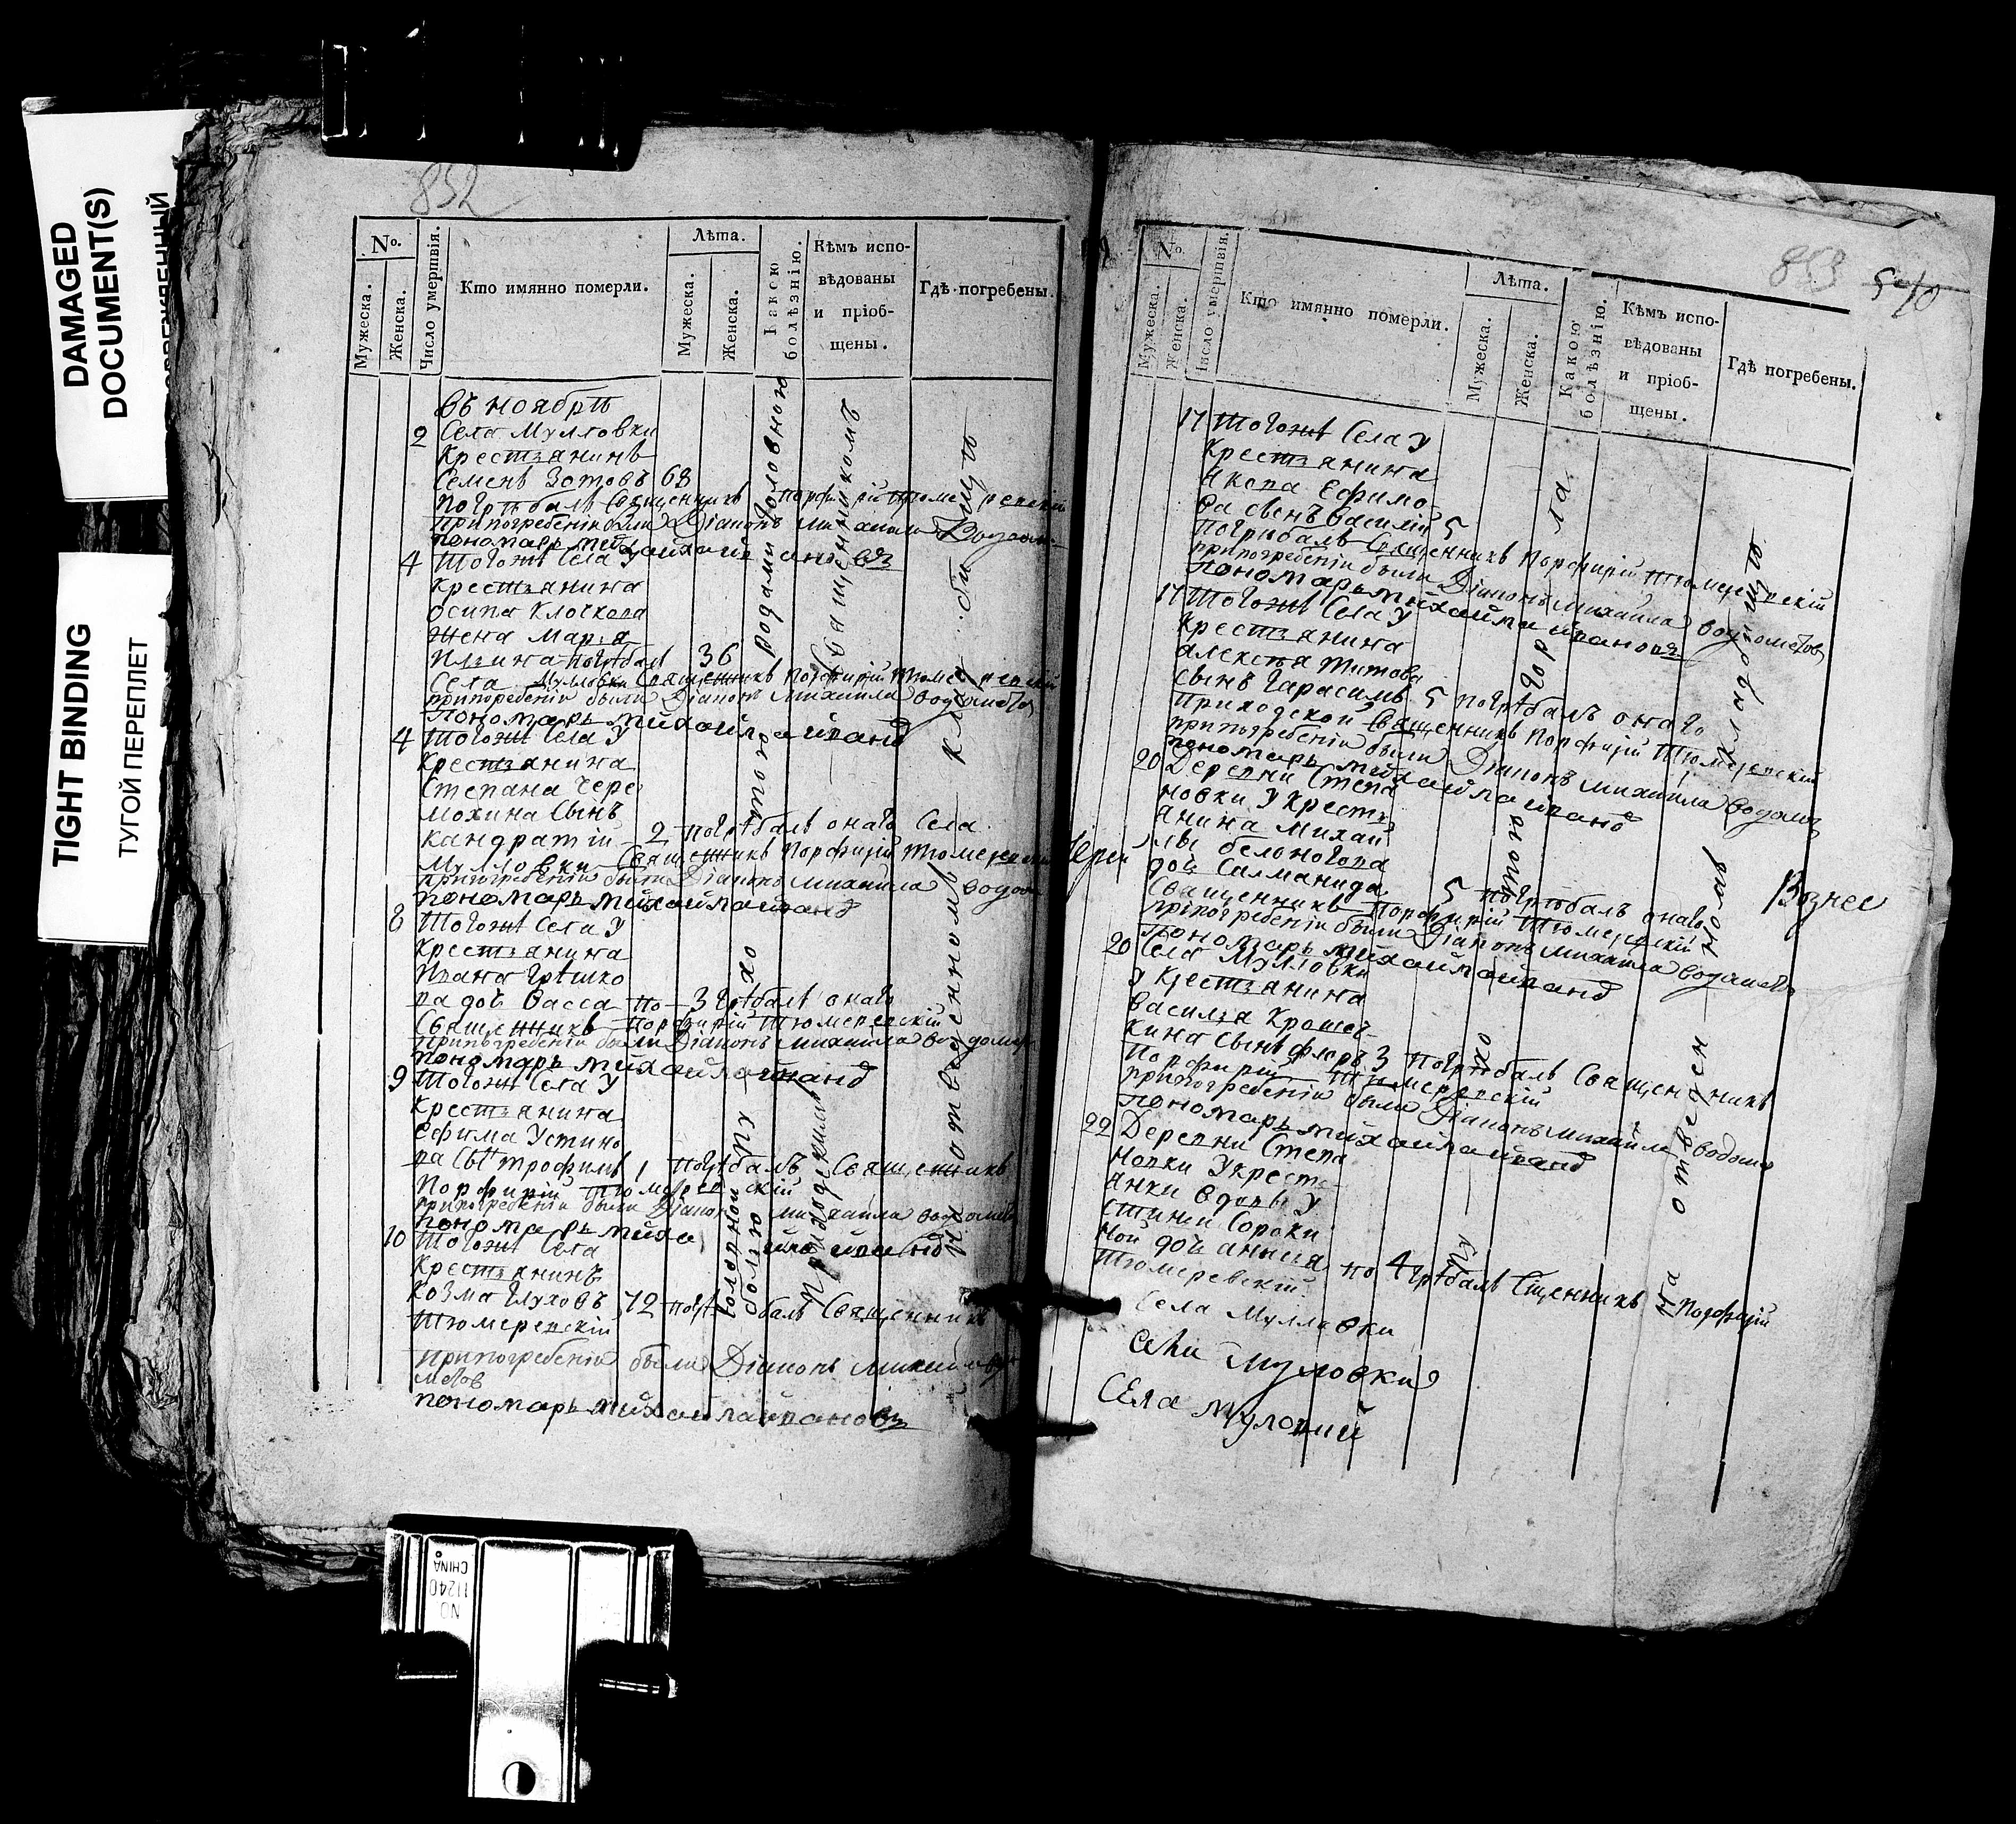 DAMAGED
DOCUMENT(S)
TIGHT BINDING
ТУГОЙ ПЕРЕПЛЕТ
852
№.
Мужеска.
Женска.
Число умершвія.
Кто имянно померли.
Лѣта.
Мужеска.
Женска.
Какою болѣзнію.
Кѣмъ испо-
вѣдованы
и пріоб-
щены.
Гдѣ погребены.
въ ноябрѣ
2 Села Мулловки
Крестьянинъ
Семенъ Зотовъ 68
погрѣбалъ Священникъ порфирій тюмеревскій
припогребеніи были Діаконъ михаила
пономарь михайла ивановъ
4 Тогожъ Села У
Крестьянина
осипа Клочкова
жена Марья
Ильина погрѣбалъ 36
Села Мулловки Священникъ порфирій тюмеревскій
припогребеніи были Діаконъ михаила водометов
пономарь михайла иванов
4 Тогожъ Села У
Крестьянина
Степана Чере
мохина Сынъ
кандратій 2 погрѣбалъ онаго Села
Мулловки Священникъ порфирій тюмеревскій
припогребеніи были Діаконъ михаила водом
пономарь михайла иванов
8 Тогожъ Села У
Крестьянина
Ивана Грѣшно
ва дочь Васса по 3 грѣбалъ онаго
Священникъ порфирій тюмеревскій
припогребеніи были Діаконъ михаила водомет
пономарь михайла иванов
9 Тогожъ Села У
Крестьянина
Ефима Устино
ва Сынъ трофимъ 1 погрѣбалъ Священникъ
Порфирій тюмеревскій
припогребеніи были Діаконъ михаила водомето
пономарь михайла иванов
10 Тогожъ Села
Крестьянинъ
Козма Глуховъ 72 погрѣбалъ Священникъ
тюмеревскій
припогребеніи были Діаконъ михаила водо
метов
пономарь михайла ивановъ
родами головною
тою
хо
пу
головной
болью
Приходскимъ Священникомъ
На отведенномъ кладбищѣ
853
№.
Мужеска.
Женска.
Число умершвія.
Кто имянно померли.
Лѣта.
Мужеска.
Женска.
Какою болѣзнію.
Кѣмъ испо-
вѣдованы
и пріоб-
щены.
Гдѣ погребены.
17 Тогожъ Села У
Крестьянина
Якова Ефимо
ва сынъ василій 5
погрѣбалъ Священникъ порфирій тюмеревскій
припогребеніи были Діаконъ михаила водометов
пономарь михайла ивановъ
17 Тогожъ Села У
Крестьянина
алексѣя титова
сынъ Гарасимъ 5 погрѣбалъ онаго
Приходской Священникъ порфирій тюмеревскій
припогребеніи были Діаконъ михаила водомет
пономарь михайла иванов
20 Деревни Степа
новки У Кресть
янина михай
лы белоногова
дочь Салманида 5 погрѣбалъ онаго
Священникъ Порфирій тюмеревскій
припогребеніи были Діаконъ михаила водомето
пономарь михайла иванов
20 Села Мулловки
У Крестьянина
василья Крошеч
кина Сынъ флоръ 3 погрѣбалъ Священникъ
Порфирій тюмеревскій
припогребеніи были Діаконъ михаила водоме
пономарь михайла иванов
22 Деревни Степа
новки Укресть
янки вдовы У
стиньи Сороки
ной дочь анисья по 4 грѣбалъ Сщенникъ Порфирій
тюмеревскій
Села Мулловки
Села Муловки
Села Муловки
горла
тою
хо
пу
На отведенномъ кладбищѣ
Вознес